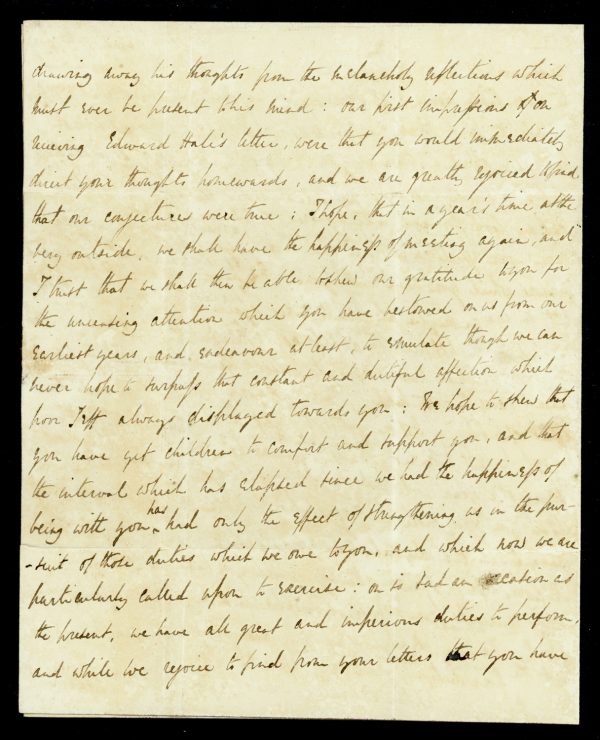 drawing away his thoughts from the melancholy reflections which
must ever be present to his mind : our first impressions on
receiving Edward Hale's letter, were that you would immediately
direct your thoughts homewards, and we are greatly rejoiced to find
that our conjectures were true : I hope, that in a year's time at the
very outside, we shall have the happiness of meeting again, and
I trust that we shall then be able to shew our gratitude to you for
the unceasing attention which you have bestowed on us from our
earliest years, and endeavour at least, to emulate though we can
never hope to surpass that constant and dutiful affection which
poor Jeff always displayed towards you : We hope to shew that
you have yet children to comfort and support you, and that
the interval which has elapsed since we had the happiness of
being with you has had only the effect of strengthening us in the pur-
-suit of those duties which we owe to you, and which now we are
particularly called upon to exercise : on so sad an occasion as
the present, we have all great and imperious duties to perform,
and while we rejoice to find from your letters that you have